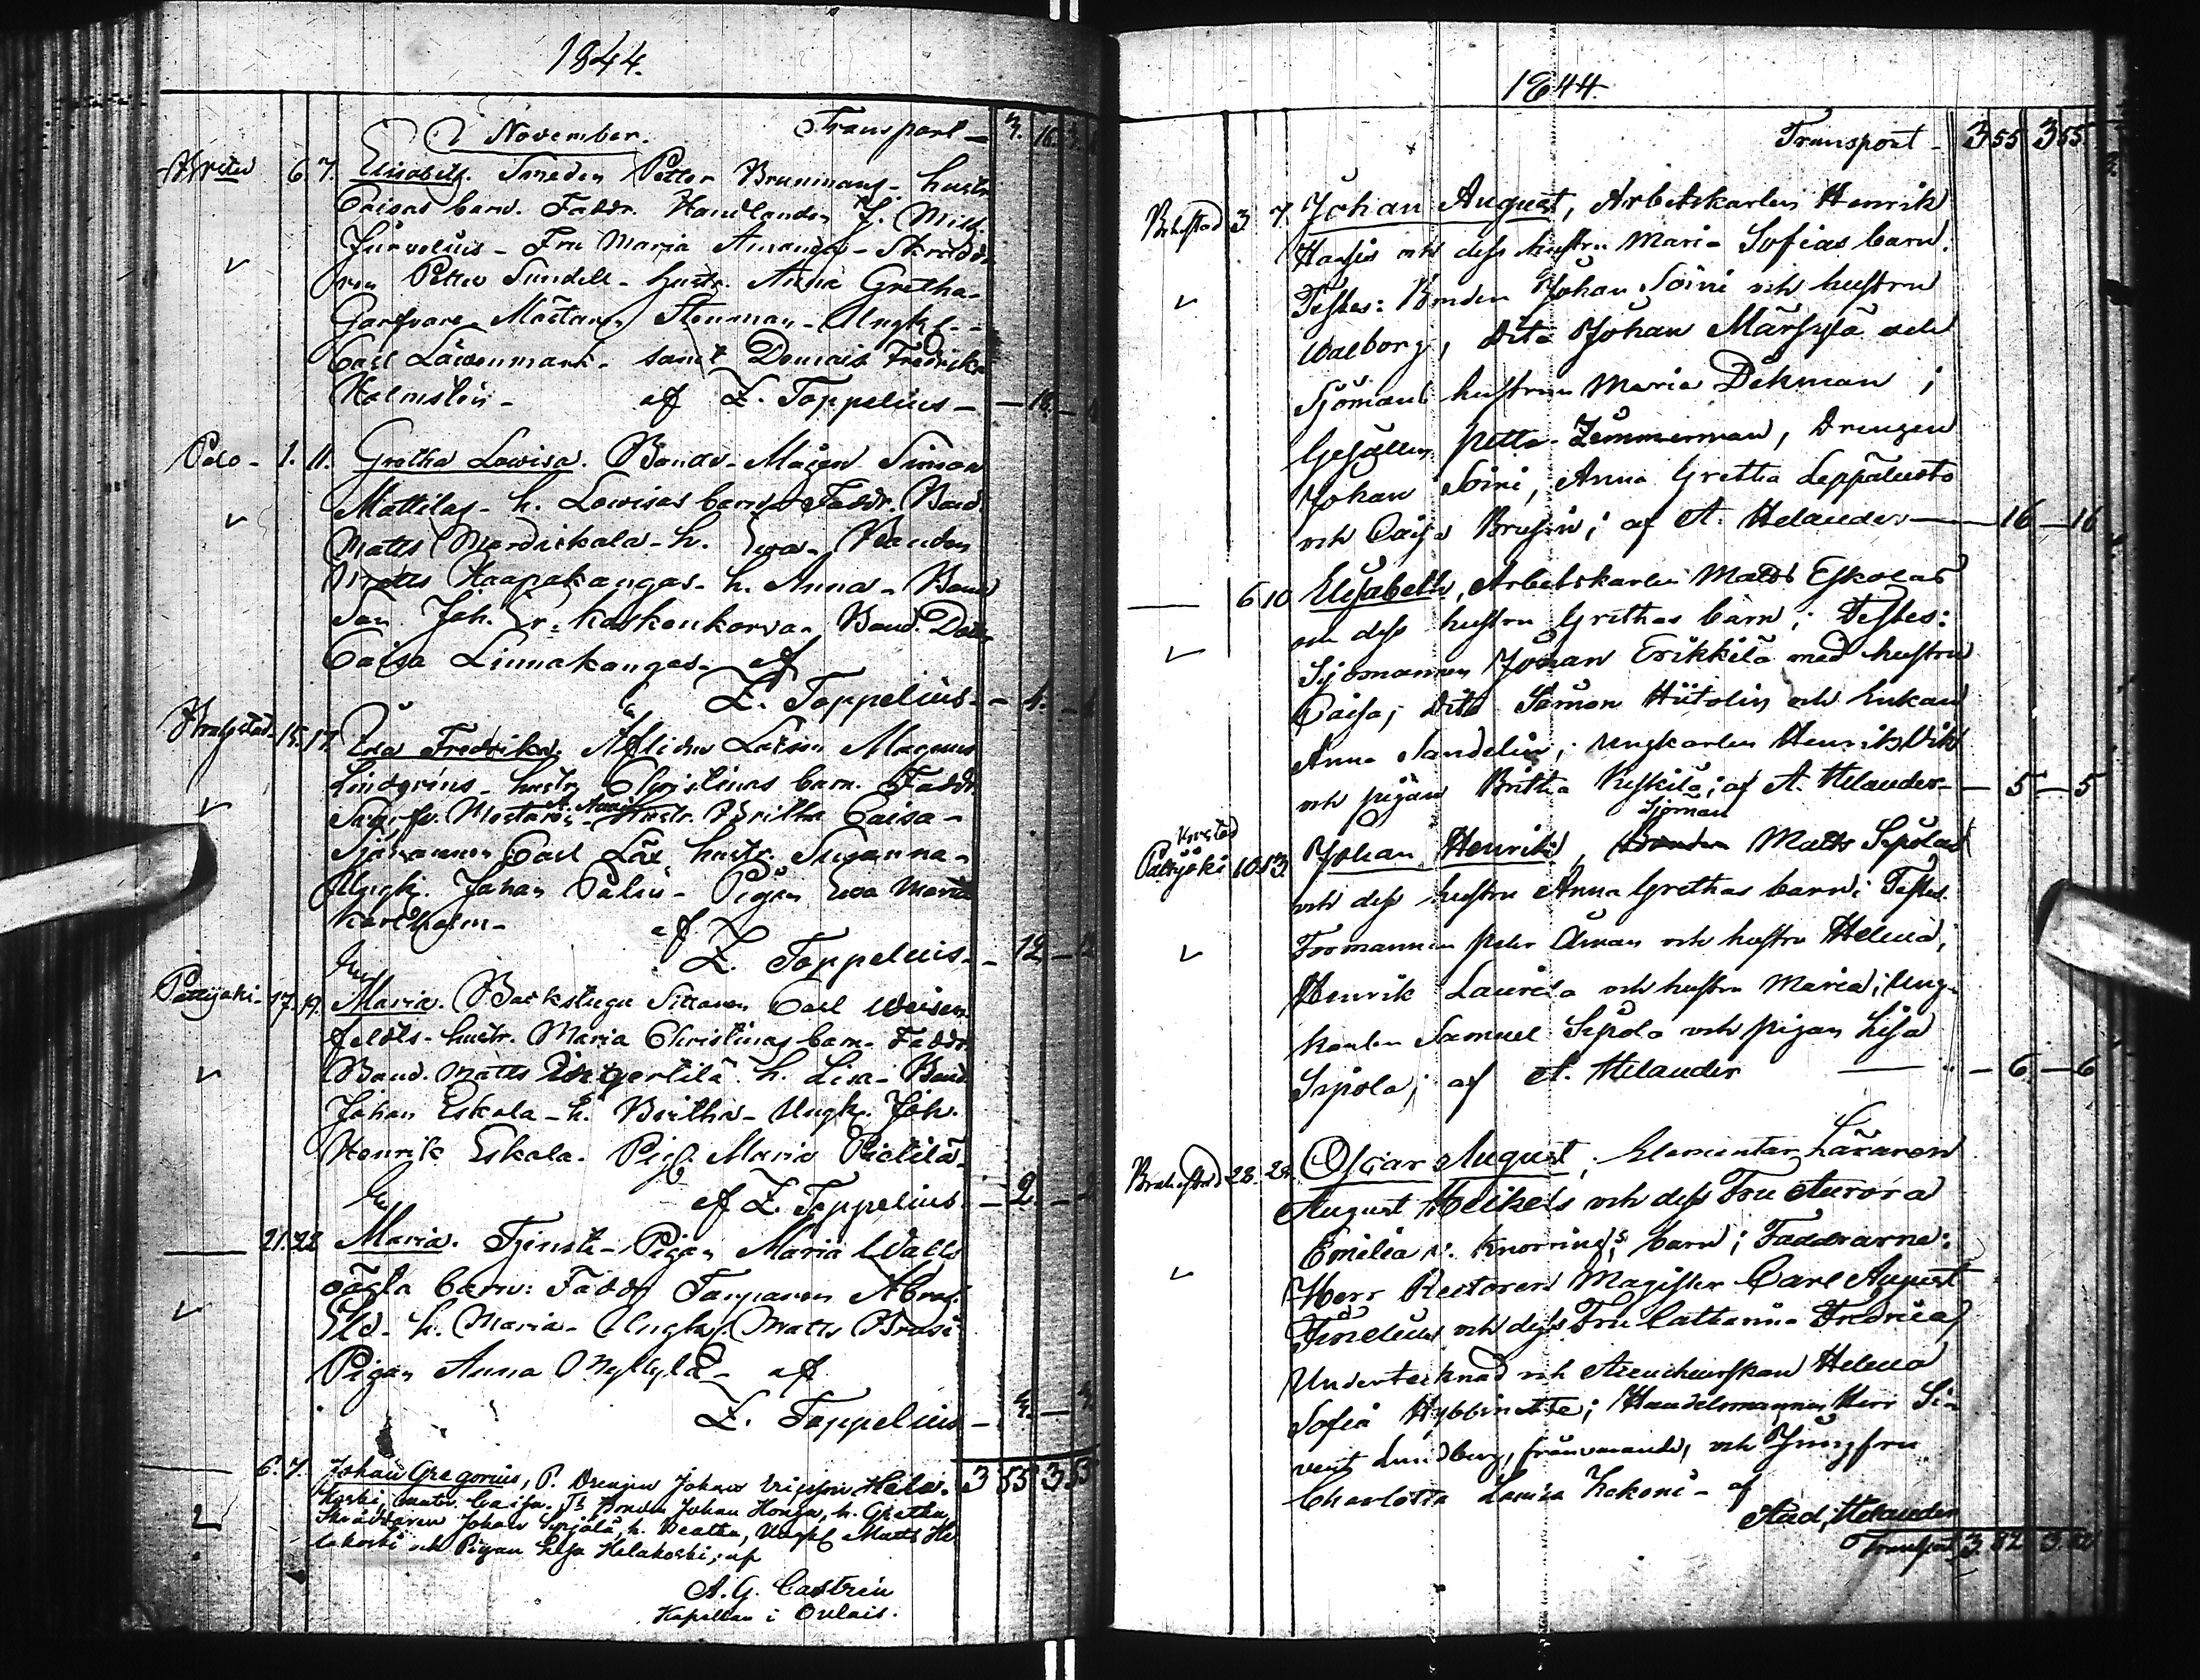 1844.
November. Transport - 3. 16.
6. 7. Elisabeth. Smeden Petter Brunmans - hustr
Caisas barn. Faddr. Handlanden J. Mill.
Jürvelius - Fru Maria Amanda - Skrädda
ren Petter Sundell - hustr. Anna Gretha -
Garfvare Mästaren Stenman - Ungk.
Carl Läwenmark - samt Demois. Fredrika
Holmstén - af Z. Toppelius - 16.
Palo - 1. 11. Gretha Lowisa. Bonde Mågen Simon
Mattilas - h. Lowisas barn. Faddr. Bond.
Matts Mardiskala - h. Ewa - Bonden
Matts Haapakangas - h. Anna - Bond
Son Joh. Er. Koskenkorva - Bond. Dotter
Caisa Linnakangas - af
Z. Toppelius. - 1.
Brahestad - 15. 17. Eva Fredrika. Aflidne Lotsen Magnus
Lindgrens - hustr. Christinas barn. Faddr.
A. Aunis
Mästaren - hustr. Britha Caisa -
Sjömannen Carl Lax hustr. Susanna -
Ungk. Johan Palin - Pigan Ewa Maria
Karlholm - af
Z. Toppelius. - 12
Pattijoki - 17. 19. Maria. Backstugu Sittaren Carl Weisen
feldts - hustr. Maria Christinas barn. Faddr.
Bond. Matts Ingertilä h. Lisa - Bond.
Johan Eskola - h. Britha - Ungk. Joh.
Henrik Eskola. Pig. Maria Pietilä -
af Z. Toppelius - 2.
21. 22 Maria. Tjenste - Pigan Maria Walls
oägta barn: Faddr. Farfaren Abrah.
Eld - h. Maria - Ungk. Matts Brasi
Pigan Anna Myllylä - af
Z. Toppelius - 4.
6. 7. Johan Gregorius, P. Drengen Johan Ericsson Hela- 3 55 3 55
koski, mater Caisa. Ts. Bonden Johan Honga, h. Gretha,
Skräddaren Johan Sirjälä, h. Beatha, Ungk. Matts He-
lakoski och Pigan Lisa Helakoski; af
A. G. Castrén
Kapellan i Oulais.
1844.
Transport - 3 55 3 55
Brhestad 3 7. Johan August, Arbetskarlen Henrik
och dess hustru Maria Sofias barn.
Testes: Bonden Johan Soini och hustru
Walborg, dito Johan Märsylä och
Sjömans hustrun Maria Dekman;
Gesällen Petter Zimmerman, Drengen
Johan Soini, Anna Gretha Leppäluoto
och Caisa Brusin; af A. Helander - 16 - 16
6 10 Elisabeth, Arbetskarlen Matts Eskolas
och dess hustru Grethas barn; Testes:
Sjömannen Johan Erikkilä med hustru
Caisa; dito Simon Hiitolin och Enkan
Anna Sandelin; Ungkarlen Henrik Wik
och pigan Britha Keskilä; af A. Helander - 5 - 5
Brstad Sjöman
Pattijoki 10 13. Johan Henrik, Bonden Matts Sipolas
och dess hustru Anna Grethas barn; Testes
Formannen Petr Åman och hustru Helena;
Henrik Laurila och hustru Maria; Ung-
karlen Samuel Sipola och pigan Lisa
Sipola; af A. Helander - 6 - 6
Brahestad 28. 28. Oscar August; Elementar Läraren
August Heikels och dess Fru Aurora
Emilia v. Knorrings barn; Faddrarne:
Herr Rectoren Magister Carl August
och dess Fru Catharina Fredrica,
Undertecknad och Helena
Sofia Hybbinette; Handelsmannen Herr Si-
vert Lundberg, frånvarande, och Jungfru
Charlotta Lovisa Kekoni - af
And. Helander
Transport 3. 82 3. 82